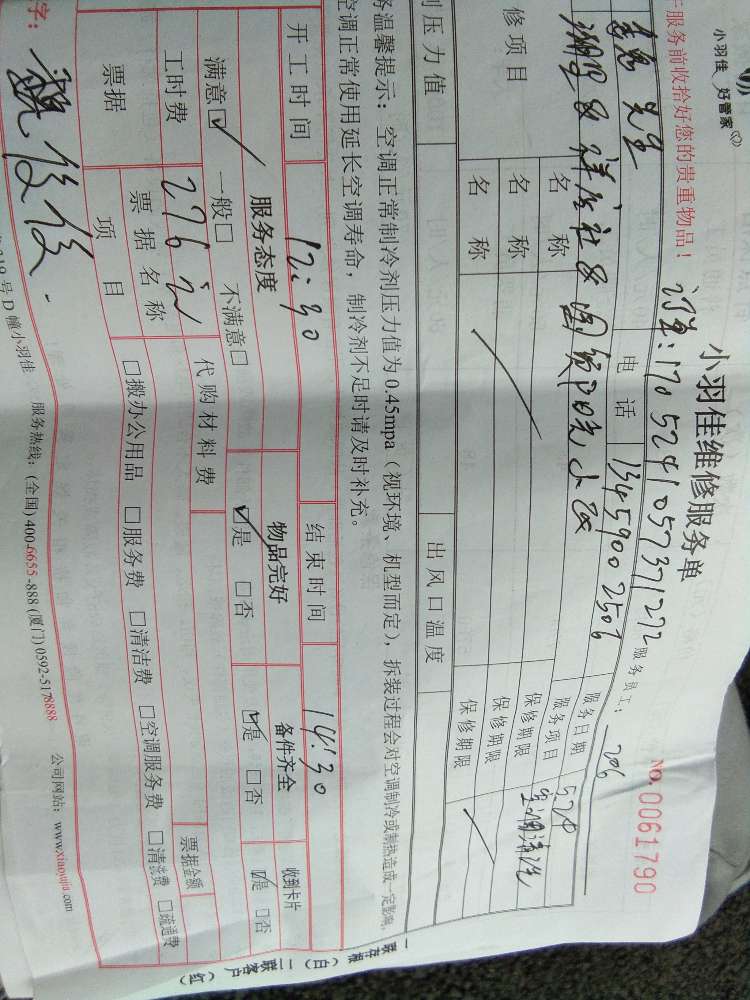 小羽佳 好管家
小羽佳维修服务单
NO.0061790
服务前收拾好您的贵重物品！
订单：1705241057371272
服务员工： 206
先生
电话 13459002506
服务日期 5.24
湖里区祥店社区国贸阳光小区
服务项目 空调清洗
修项目 名称 保修期限
名称 保修期限
名称 保修期限
压力值 出风口温度
温馨提示：空调正常制冷剂压力值为0.45mpa（视环境、机型而定），拆装过程会对空调制冷或制热造成一定影响，
空调正常使用延长空调寿命，制冷剂不足时请及时补充。
开工时间 12:30 结束时间 14:30
服务态度 物品完好 备件齐全 收到卡片
满意☑ 一般□ 不满意□ ☑是 □否 ☑是 □否 ☑是 □否
工时费 276元 代购材料费
票据 票据名称 票据金额
项目 □搬办公用品 □服务费 □清洁费 □空调服务费 □清洗费 □疏通费
字：
号D幢小羽佳 服务热线：(全国) 400-6655-888 (厦门) 0592-5178888 公司网站：www.xiaoyujia.com
一联存根（白） 二联客户（红）